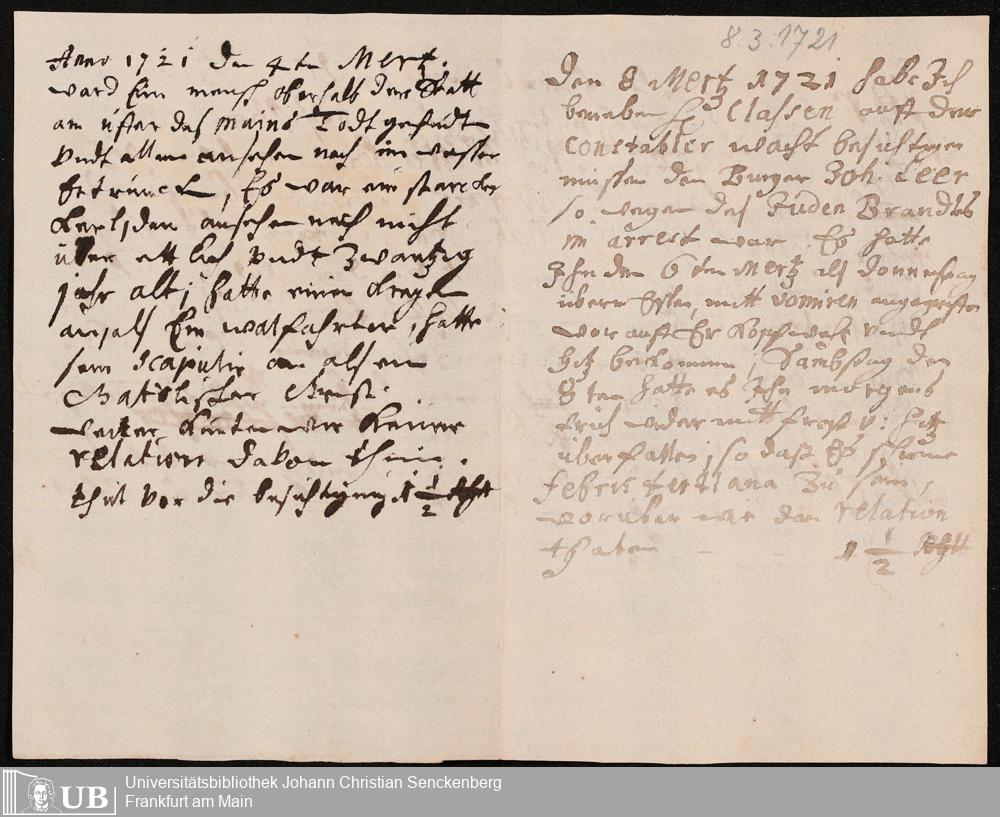 Anno 1721 den 4ten Mertz.
ward Ein mensch oberhalb der Statt
am uffer des Mains Todt gefundten
undt allem ansehen nach im wasser
Ertrunck, Es war ein starcker
Kerl, dem ansehen nach nicht
über ettlich undt zwantzig
jahr alt, hatte einen Kragen
an, als Ein walfahrter, hatte
sein Scapulir an als ein
Catolischer Christ.
weiter Kunten wir Keine
relation davon thun.
thut vor die besichtigung 1 1/2
8.3.1721
Den 8 Mertz 1721 habe Ich
beneben H. Classen auff der
Constabler wacht besichtigen
müssen den Burger Joh. Leer
so wegen des Juden Brandts
in arrest war. Es hatte
Ihn den 6ten Mertz als Donnerstag
überm Essen, mitt vomiren angegriffen
wor auff Er Kopfwehe undt
Hitz bekommen, Sambstag den
8ten hatte es Ihn morgens
früh wider mitt frost u: Hitz
überfallen, so daß Es schiene
febris tertiana zu sein,
worüber wir dan relation
thaten - - 1 1/2
Universitätsbibliothek Johann Christian Senckenberg
Frankfurt am Main
UB